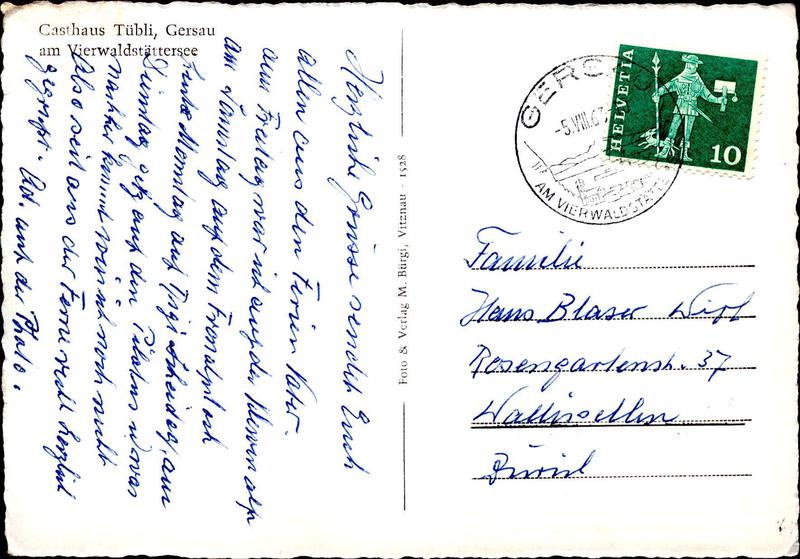 Casthaus Tübli, Gersau
am Vierwaldstättersee
Herzliche Grüsse sendet Euch
allen aus den Ferien Vater.
am Freitag war ich auf der
am Samstag auf dem Fronalpstock
Montag auf Rigi Scheidegg, am
Dienstag auf den Pilatus u. was
nachher kommt weiss ich noch nicht
Also seit aus der Ferne recht herzlich
gegrüsst. Ad. auf der Photo.
Foto & Verlag M. Bürgi, Vitznau - 1528
GERSAU
-5.VIII.63
AM VIERWALDSTÄTTE
HELVETIA
10
Familie
Hans Blaser Wipf
Rosengartenstr. 37
Wallisellen
Zürich